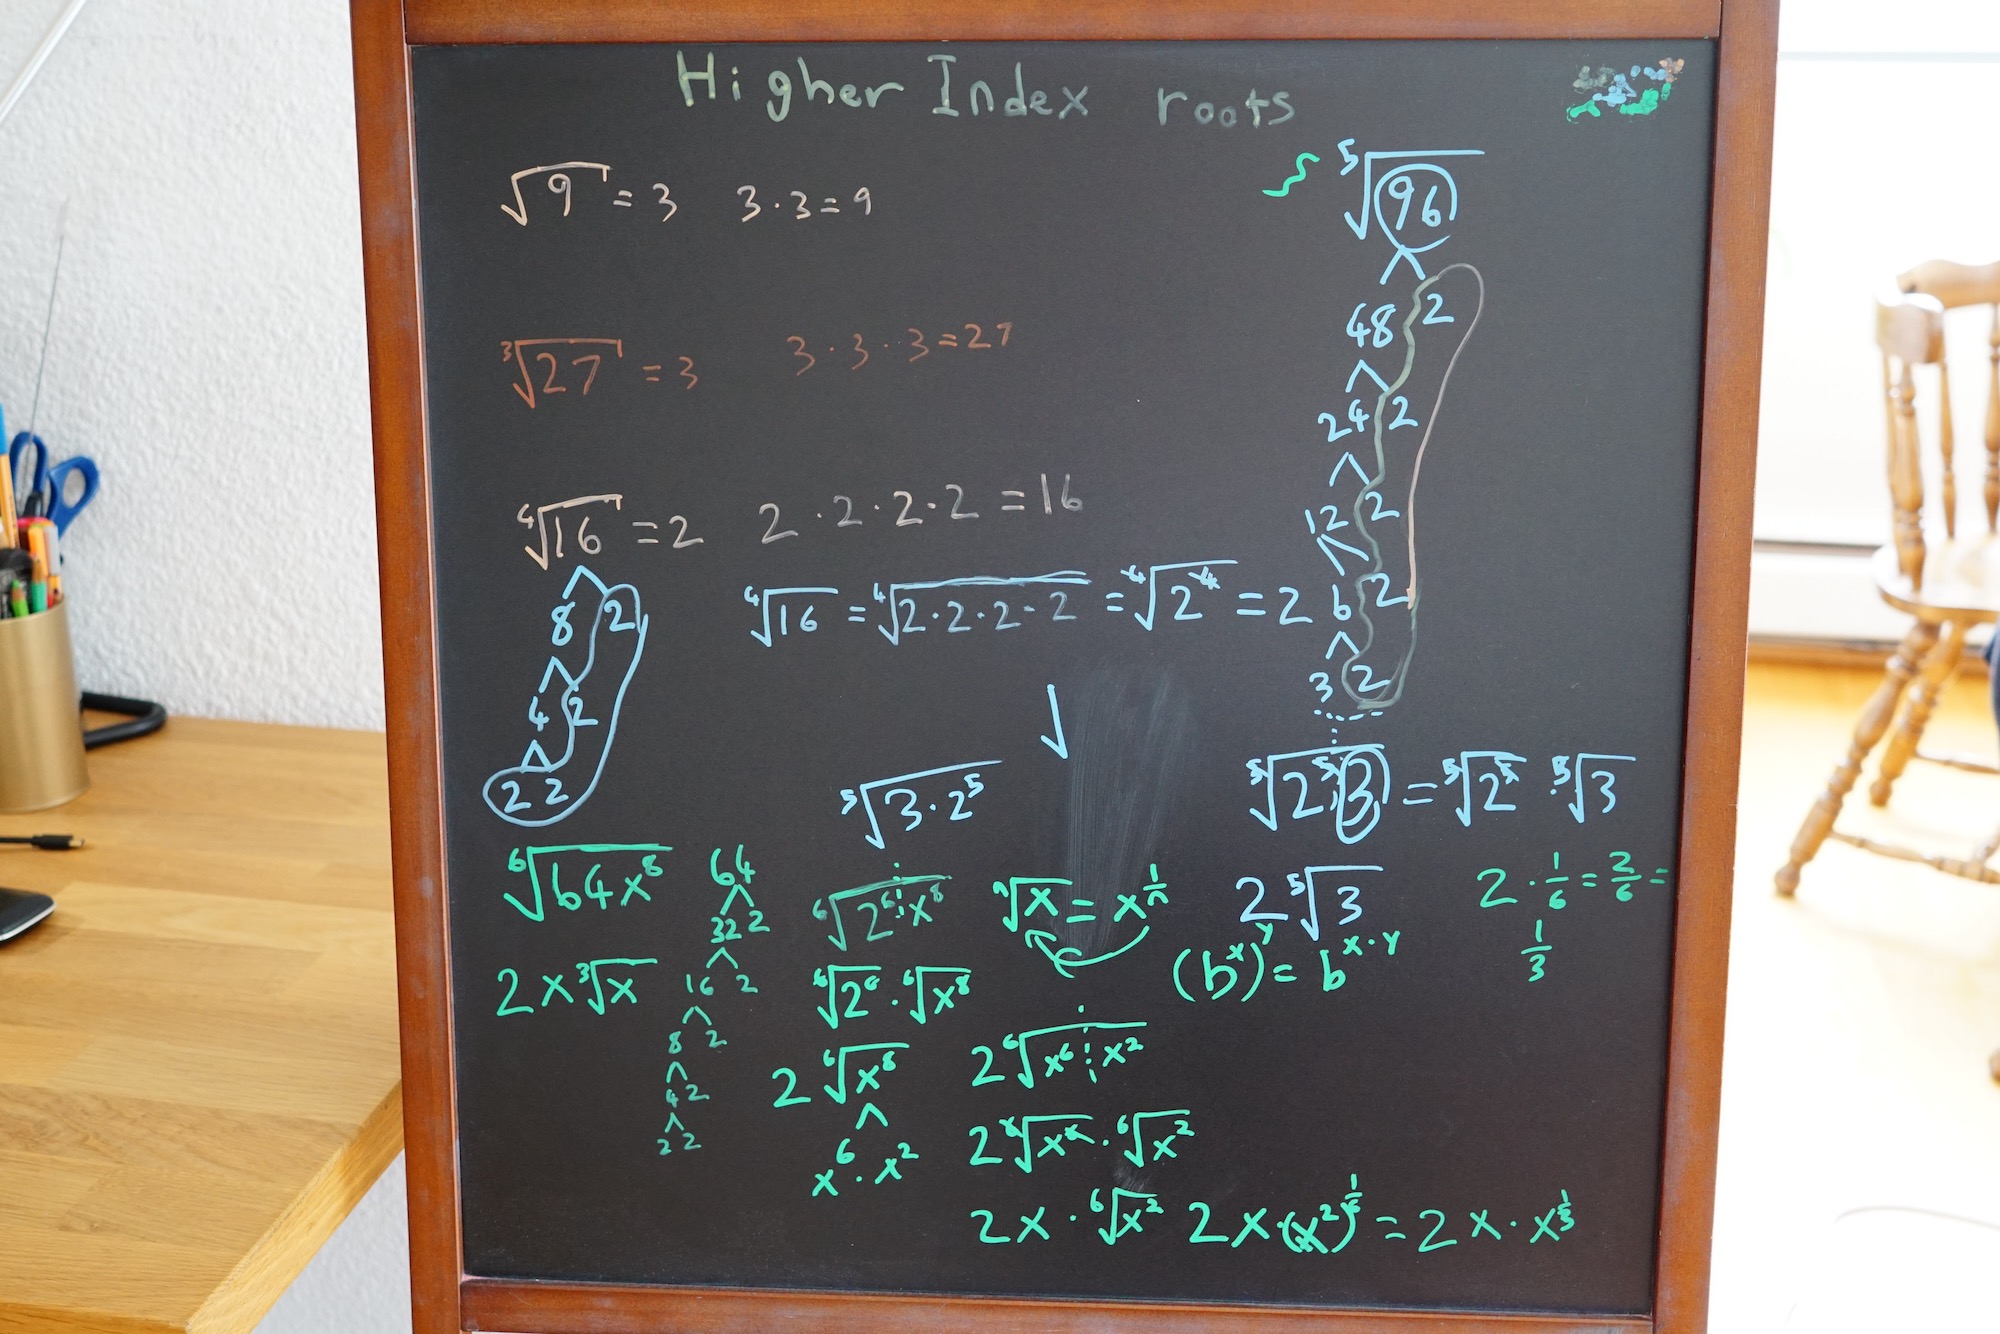 Higher Index roots
√9 = 3 3·3=9
∛27 = 3 3·3·3=27
∜16 = 2 2·2·2·2=16
8 2
4 2
2 2
∜16 = ∜(2·2·2·2) = ∜(2⁴) = 2
⁵√96
48 2
24 2
12 2
6 2
3 2
⁵√(3·2⁵)
⁵√(2⁵·3) = ⁵√(2⁵) · ⁵√3
2 ⁵√3
⁶√(64x⁸)
2x ∛x
64
32 2
16 2
8 2
4 2
2 2
⁶√(2⁶·x⁸)
⁶√(2⁶) · ⁶√(x⁸)
2 ⁶√(x⁸)
x⁶ · x²
ⁿ√x = x^(1/n)
(b^x)^y = b^(x·y)
2 · 1/6 = 2/6 =
1/3
2 ⁶√(x⁶·x²)
2 ⁶√(x⁶) · ⁶√(x²)
2x · ⁶√(x²) 2x·(x²)^(1/6) = 2x · x^(1/3)